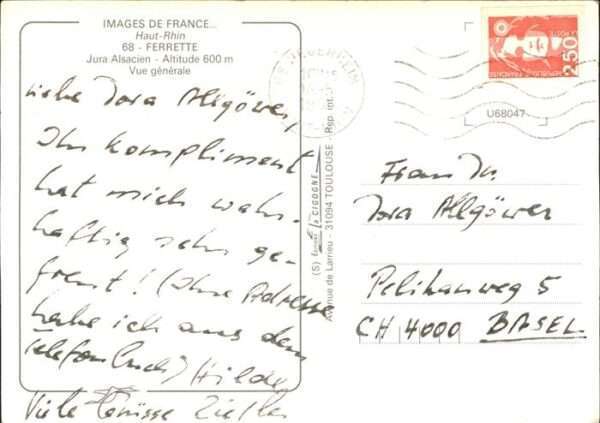 IMAGES DE FRANCE...
Haut-Rhin
68 - FERRETTE
Jura Alsacien - Altitude 600 m
Vue générale
Liebe Dora Allgöwer,
Ihr Kompliment
hat mich wahr-
haftig sehr ge-
freut! (Ihre Adresse
habe ich aus dem
Telefonbuch) Hilde
Viele Grüsse Ziegler
(S) Editions La CIGOGNE
Avenue de Larrieu - 31094 TOULOUSE - Rep. int.
2,50
LA POSTE
REPUBLIQUE FRANÇAISE
U68047
Frau Dr.
Dora Allgöwer
Pelikanweg 5
CH 4000 BASEL